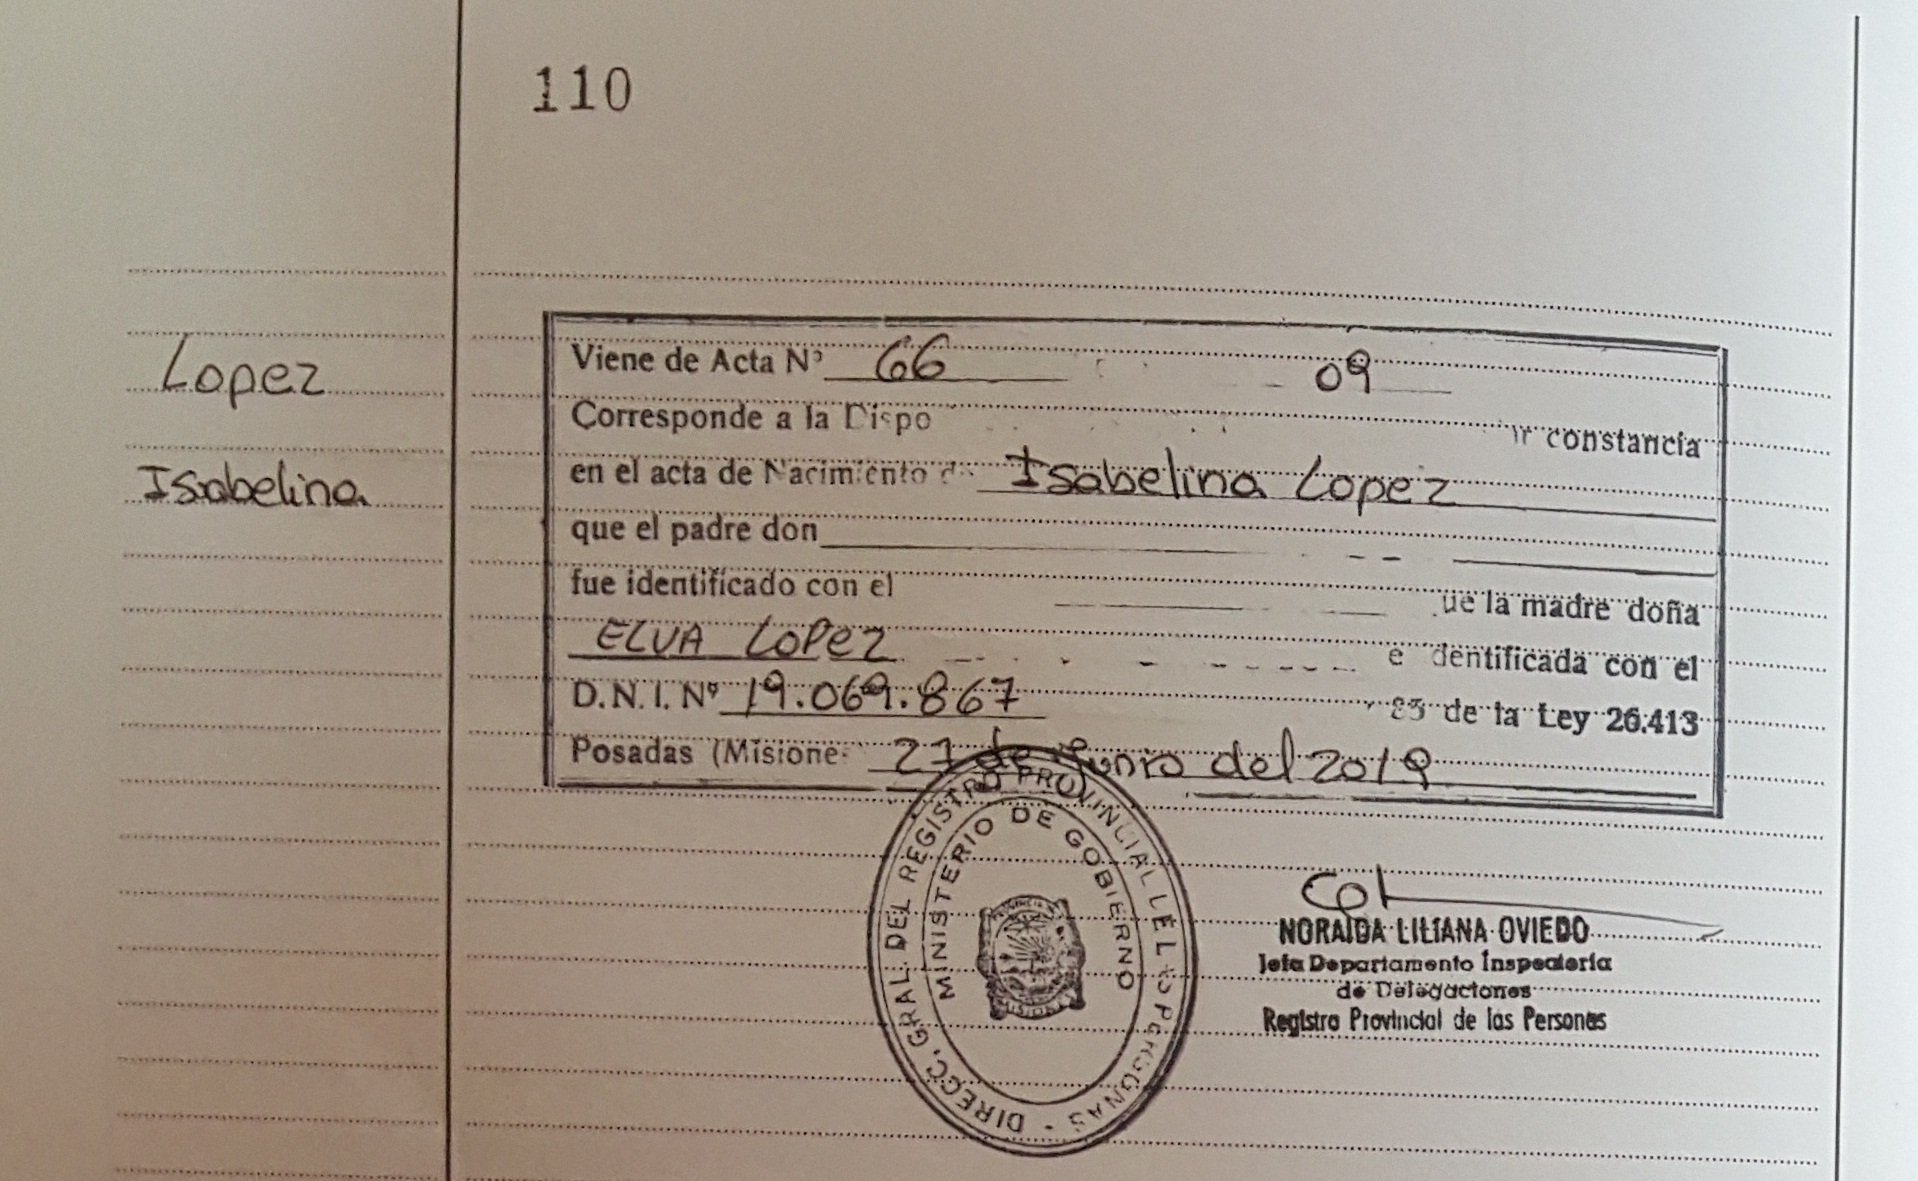 110
Lopez
Isabelina
Viene de Acta Nº 66 09
Corresponde a la Dispo constancia
en el acta de Nacimiento Isabelina Lopez
que el padre don
fue identificado con el ue la madre doña
ELVA LOPEZ dentificada con el
D.N.I. Nº 19.069.867 de la Ley 26.413
Posadas (Misione 27 de Junio del 2019
DIRECC. GRAL. DEL REGISTRO PROVINCIAL PERSONAS
MINISTERIO DE GOBIERNO
NORAIDA LILIANA OVIEDO
Jefa Departamento Inspectoría
de Delegaciones
Registro Provincial de las Personas